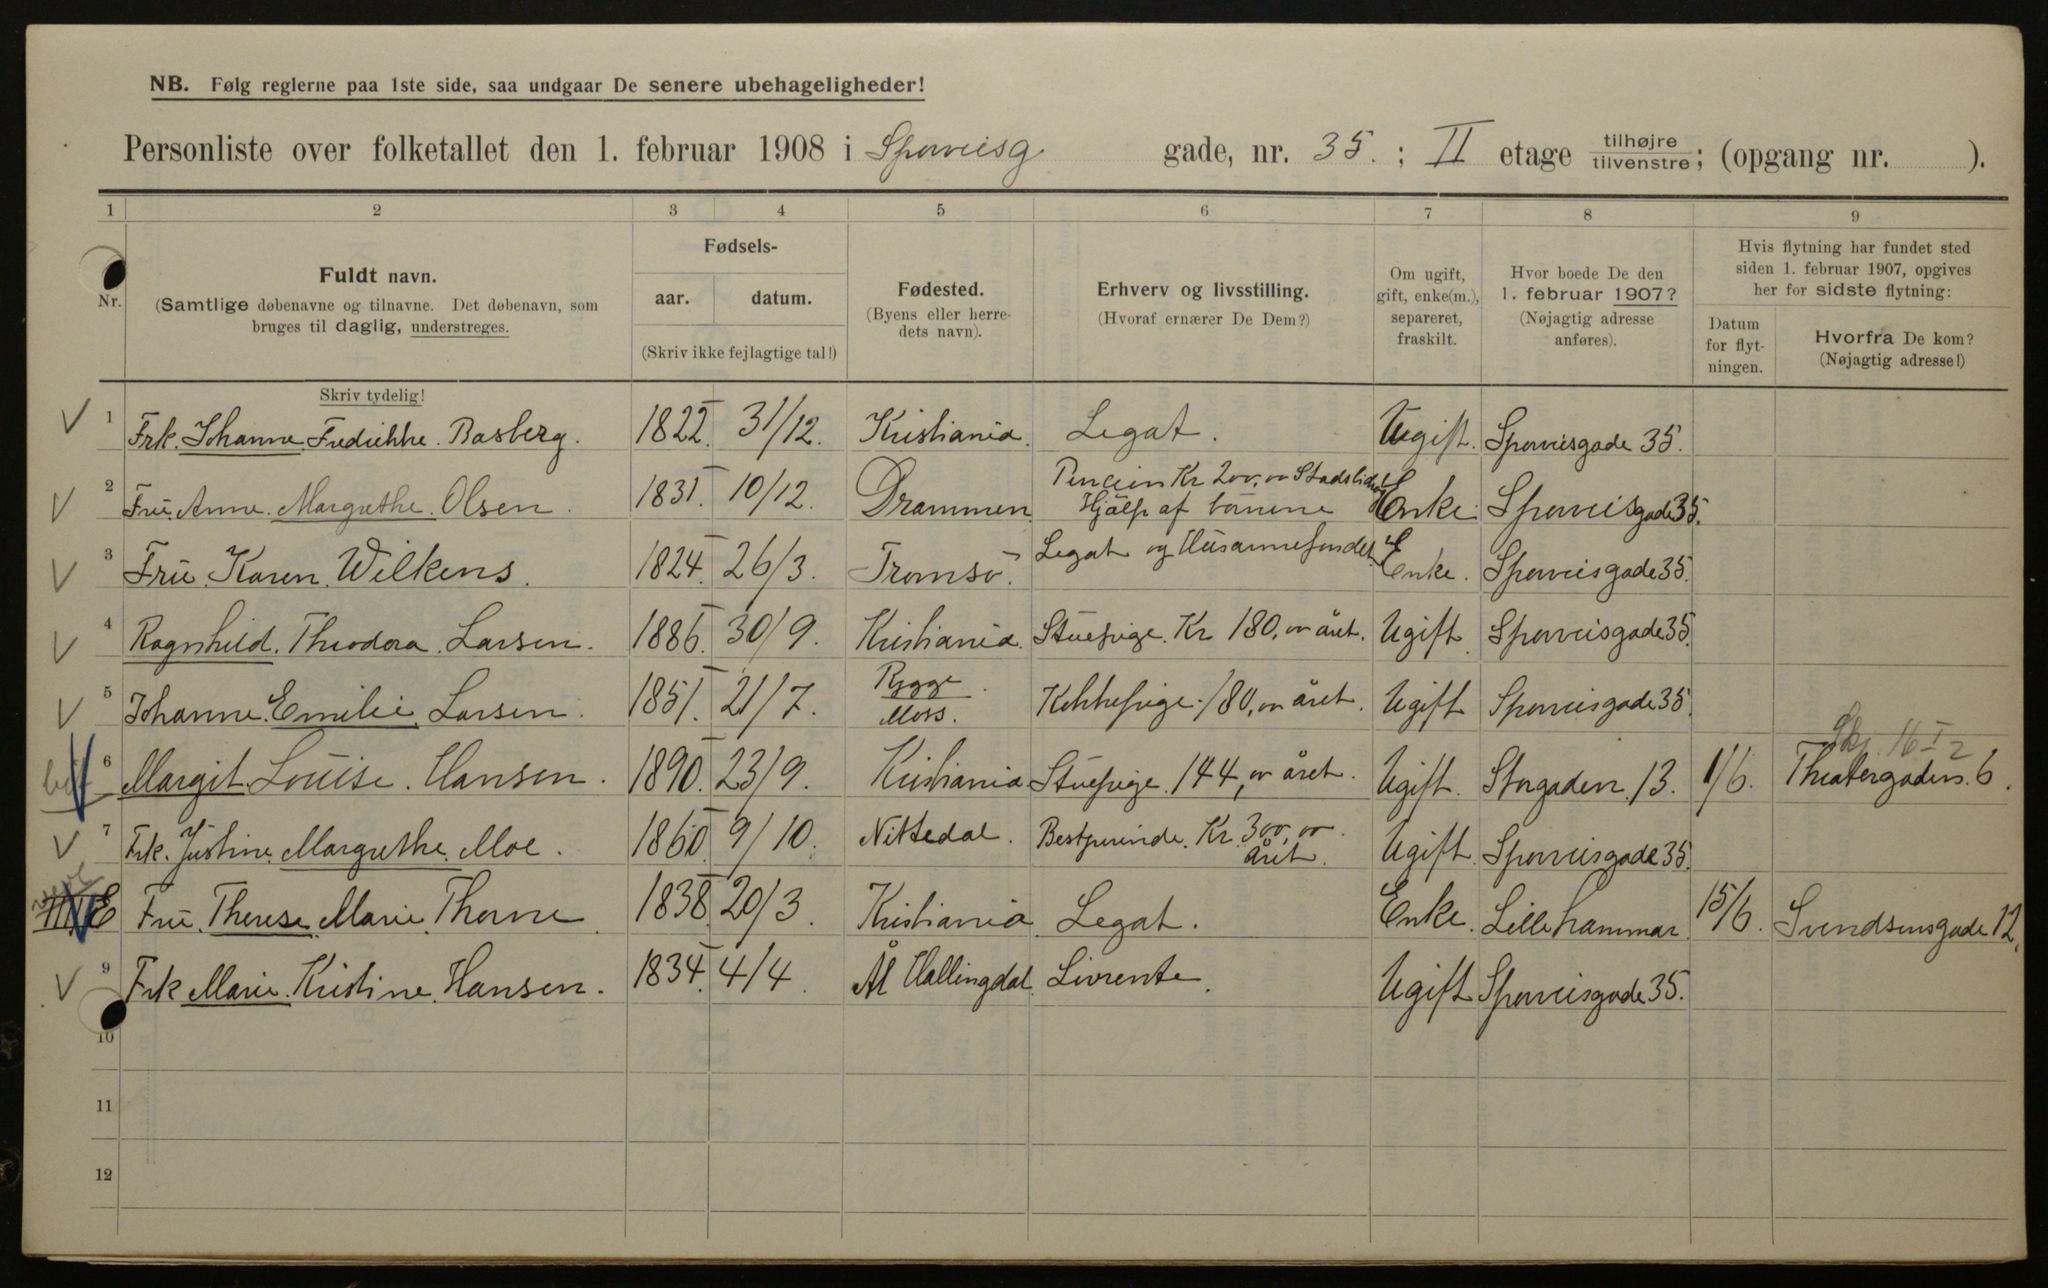 NB. Følg reglerne paa 1ste side, saa undgaar De senere ubehageligheder!
Personliste over folketallet den 1. februar 1908 i Sporveisg gade, nr. 35. ; II etage tilhøjre tilvenstre; (opgang nr. ).
1 2 3 4 5 6 7 8 9
Nr.
Fuldt navn.
(Samtlige døbenavne og tilnavne. Det døbenavn, som
bruges til daglig, understreges.
Skriv tydelig!
Fødsels-
aar. datum.
(Skriv ikke fejlagtige tal!)
Fødested.
(Byens eller herre-
dets navn).
Erhverv og livsstilling.
(Hvoraf ernærer De Dem?)
Om ugift,
gift, enke(m.),
separeret,
fraskilt.
Hvor boede De den
1. februar 1907?
(Nøjagtig adresse
anføres).
Hvis flytning har fundet sted
siden 1. februar 1907, opgives
her for sidste flytning:
Datum
for flyt-
ningen.
Hvorfra De kom?
(Nøjagtig adresse!)
1 Frk. Johanne Fredrikke. Basberg. 1822. 31/12. Kristiania. Legat. Ugift. Sporveisgade 35.
2 Fru. Anne. Margrethe. Olsen. 1831. 10/12. Drammen. Pencion Kr 200,00 Enke. Sporveisgade 35.
Hjälp af börnene
3 Fru. Karen. Wilkens. 1824. 26/3. Tromsö. Legat og Enke. Sporveisgade 35.
4 Ragnhild. Theodora. Larsen. 1886. 30/9. Kristiania. Stuepige. Kr 180,00 året. Ugift. Sporveisgade 35.
5 Johanne. Emilie. Larsen. 1851. 21/7. Rygge Moss. Kokkepige. 180,00 året. Ugift Sporveisgade 35.
16 I 2
6 Margit. Louise. Hansen. 1890. 23/9. Kristiania Stuepige. 144,00 året. Ugift. Storgaden. 13. 1/6. Theatergaden. 6.
7 Frk. Justine. Margrethe. Moe. 1860. 9/10. Nittedal. Bestyrerinde. Kr. 300,00. Ugift. Sporveisgade 35.
året.
E Fru. Therese. Marie. Thorne 1838. 20/3. Kristiania. Legat. Enke. Lillehammar. 15/6. Svendsensgade 12.
9 Frk Marie. Kristine. Hansen. 1834. 4/4. Ål Hallingdal. Livrente. Ugift Sporveisgade 35.
10
11
12